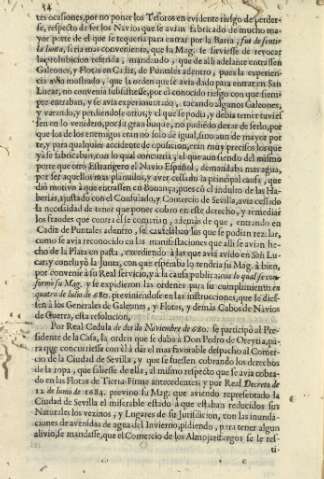 54
tes ocasiones, por no poner los Tesoros en evidente riesgo de perder-
se, respecto de ser los Navios que se avian fabricado de mucho ma-
yor porte de el que se requeria para entrar por la Barra, fue de sentir
la Junta, seria mas conveniente, que su Mag. se sirviesse de revocar
la prohibicion referida, mandando, que de alli adelante entrassen
Galeones, y Flotas en Cadiz, de Puntales adentro, pues la experien-
cia avia mostrado, que la orden que se avia dado para entrar en San
Lucar, no convenia subsistiesse, por el conocido riesgo con que siem-
pre entraban, y se avia experimentado, tocando algunos Galeones,
y varando, y perdiendose otros, y el que se podia, y debia temer tuviessen
en lo venidero, por ser gran buque, no pudiendo dexar de serlo, por
que los de los enemigos eran no solo de igual, sino aun de mayor por
te, y para qualquier accidente de oposicion, eran muy precisos los que
ya se fabricaban, con lo qual concurria, el que aun siendo del mismo
porte que otro Estrangero el Navio Español, demandaba mas agua,
por ser aquellos mas planudos, y aver cessado la principal causa, que
dió motivo à que entrassen en Bonança, pues cõ el indulto de las Ha-
berias, ajustado con el Consulado, y Comercio de Sevilla, avia cessado
la necessidad de tener que poner cobro en este derecho, y remediar
los fraudes que contra él se cometian, además de que, entrando en
Cadiz de Puntales adentro, se cautelaban los que se podian rezelar,
como se avia reconocido en las manifestaciones que alli se avian he-
cho de la Plata en pasta, excediendo à las que avia avido en San Lu-
car, y concluyó la Junta, con que esperaba lo tendria su Mag. à bien,
por convenir à su Real servicio, y à la causa publica: con lo qual se con-
formó su Mag. y se expidieron las ordenes para su cumplimiento en
quatro de Julio de 680. previniendose en las instrucciones, que se dies-
sen à los Generales de Galeones, y Flotas, y demás Cabos de Navios
de Guerra, esta resolucion.
Por Real Cedula de dos de Noviembre de 680. se participó al Pre-
sidente de la Casa, la orden que se daba à Don Pedro de Oreytia, pa-
ra que concurriesse con él à dàr el mas favorable despacho al Comer-
cio de la Ciudad de Sevilla, y que se fuessen cobrando los derechos
de la ropa, que saliesse de ella, al mismo respecto que se avia cobra-
do en las Flotas de Tierra-Firme antecedentes: y por Real Decreto de
12 de Junio de 1684. previno su Mag. que aviendo representado la
Ciudad de Sevilla el miserable estado à que estaban reducidos sus
Naturales los vezinos, y Lugares de su Jurisdicion, con las inunda-
ciones de avenidas de agua del Invierno, pidiendo, para tener algun
alivio, se mandasse, que el Comercio de los Almojarifazgos se le res-
ti-